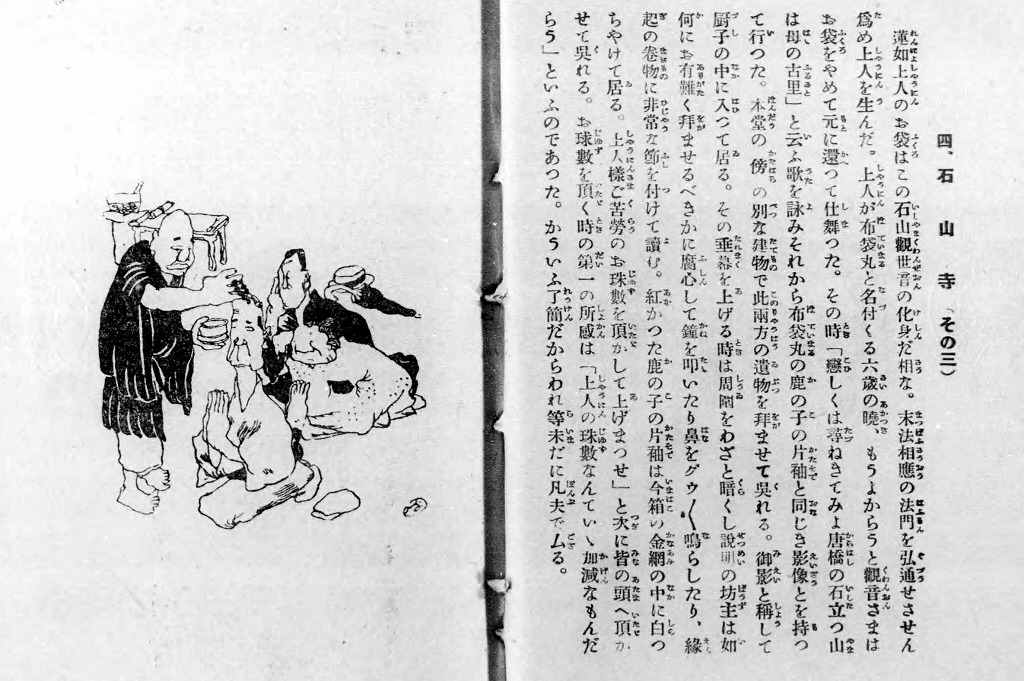 四、石山寺(その三)
蓮如上人のお袋はこの石山觀世音の化身だ相な。末法相應の法門を弘通せさせん
爲め上人を生んだ。上人が布袋丸と名付くる六歳の曉、もうよからうと觀音さまは
お袋をやめて元に還つて仕舞つた。その時「戀しくは尋ねきてみよ唐橋の石立つ山
は母の古里」と云ふ歌を詠みそれから布袋丸の鹿の子の片袖と同じき影像とを持つ
て行つた。本堂の傍の別な建物で此兩方の遺物を拜ませて呉れる。御影と稱して
厨子の中に入つて居る。その垂幕を上げる時は周圍をわざと暗くし說明の坊主は如
何にお有難く拜ませるべきかに腐心して鐘を叩いたり鼻をグウ〱鳴らしたり、緣
起の卷物に非常な節を付けて讀む。紅かつた鹿の子の片袖は今箱の金網の中に白つ
ちやけて居る。上人樣ご苦勞のお珠數を頂かして上げまつせ」と次に皆の頭へ頂か
せて呉れる。お球數を頂く時の第一の所感は「上人の珠數なんていゝ加減なもんだ
らう」といふのであつた。かういふ了簡だからわれ等未だに凡夫でムる。